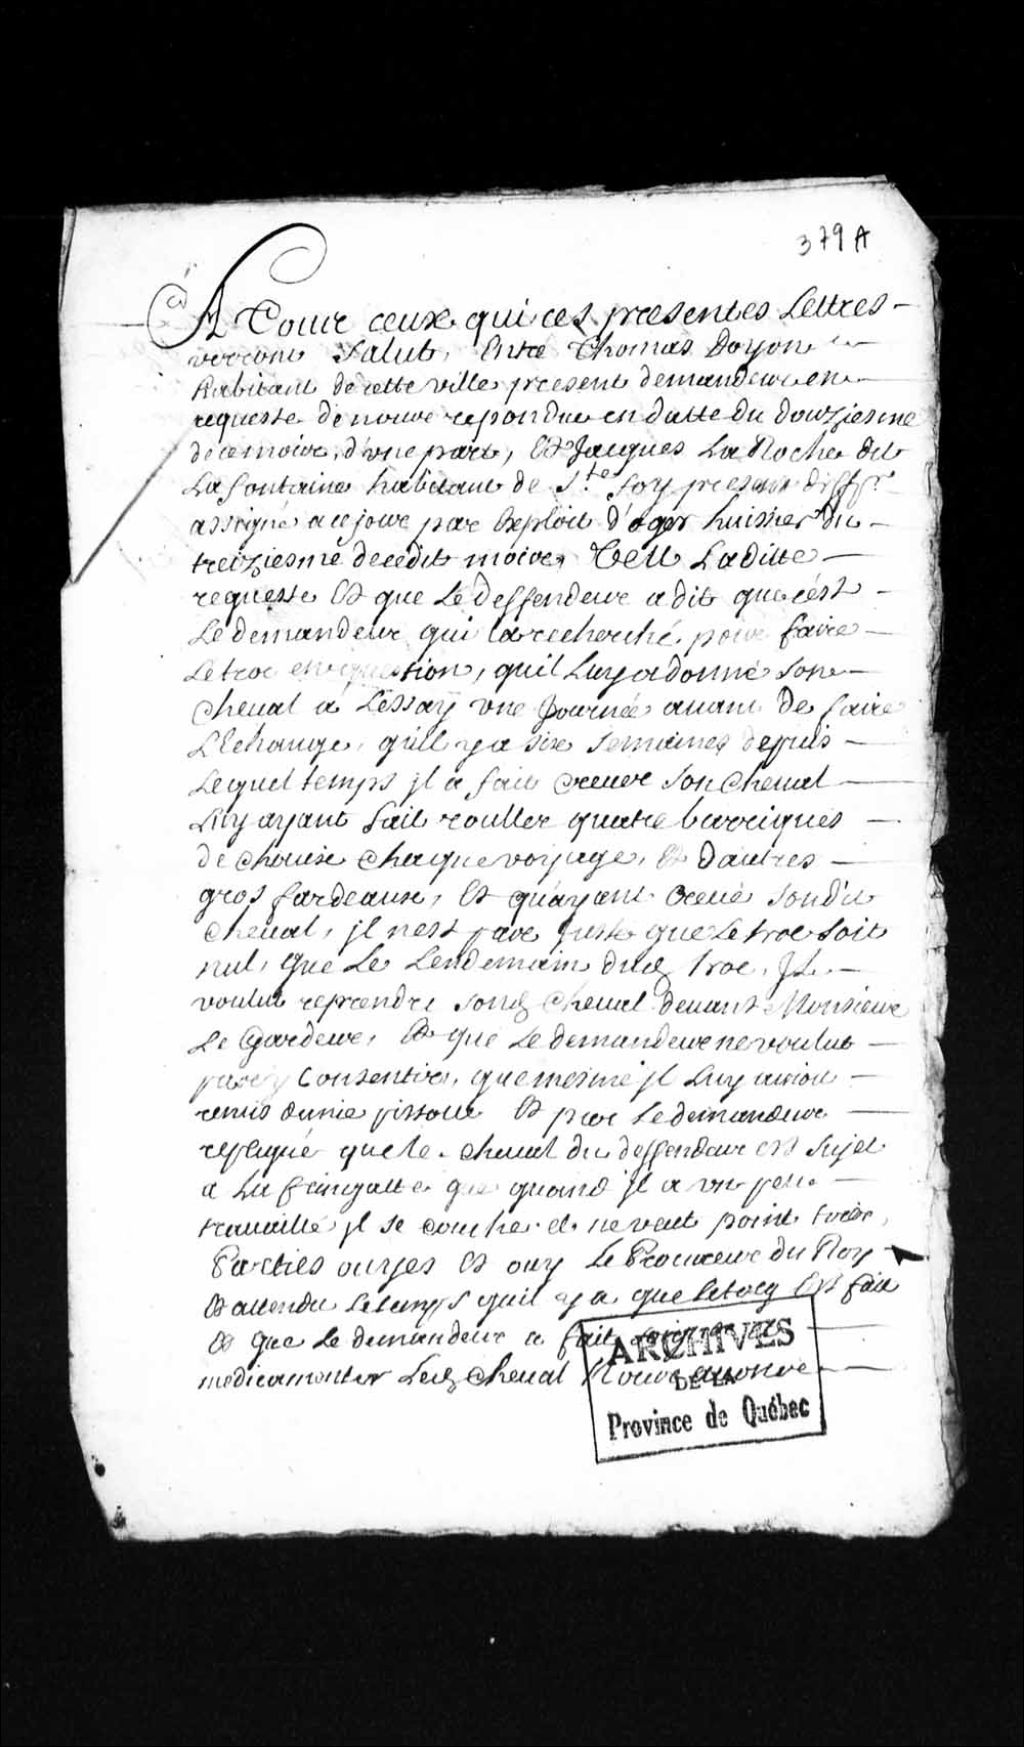 379 A
A Tour ceux qui ces presentes Lettres
verront Salut, Entre Thomas Doyon
habitant de cette ville present demandeur en
requeste de nous repondue en datte du douziesme
de ce mois, d'une part, Et Jacques La Roche dit
Lafontaine habitant de S.te foy present deff.r
assigné a ce jour par Exploit d'oger huissier du
treiziesme de cedit mois, Veu Laditte
requeste Et que Le deffendeur a dit que cést
Le demandeur qui la recherché pour faire
Le troc en question, quil Luy a donné son
cheual a Lessay une Journée auant de faire
LEchange, quil y a six semaines depuis
Lequel temps jl a fait creuer son cheual
Luy ayant fait rouller quatre barriques
de chaux chaque voyage, Et dautres
gros fardeaux, Et quáyant creué sondit
cheual, jl nest pas juste que Le troc soit
nul, que Le Lendemain dud troc, jl
voulut reprendre sond cheual deuant Monsieur
Le Gardeur, Et que Le demandeur ne voulut
pas y Consentir, que mesme jl Luy auoit
remis dunie pistolle Et par Le demandeur
repliqué que le cheual du deffendeur est sujet
a La fringalle que quand jl a un peu
trauaillé jl se couche et ne veut point tirer,
Parties ouyes Et ouy Le Procureur du Roy
Et attendu Le temps quil y a que Le trocq Est fait
Et que Le demandeur a fait
medicamenter Led cheual Nous auons
ARCHIVES
DE LA
Province de Québec